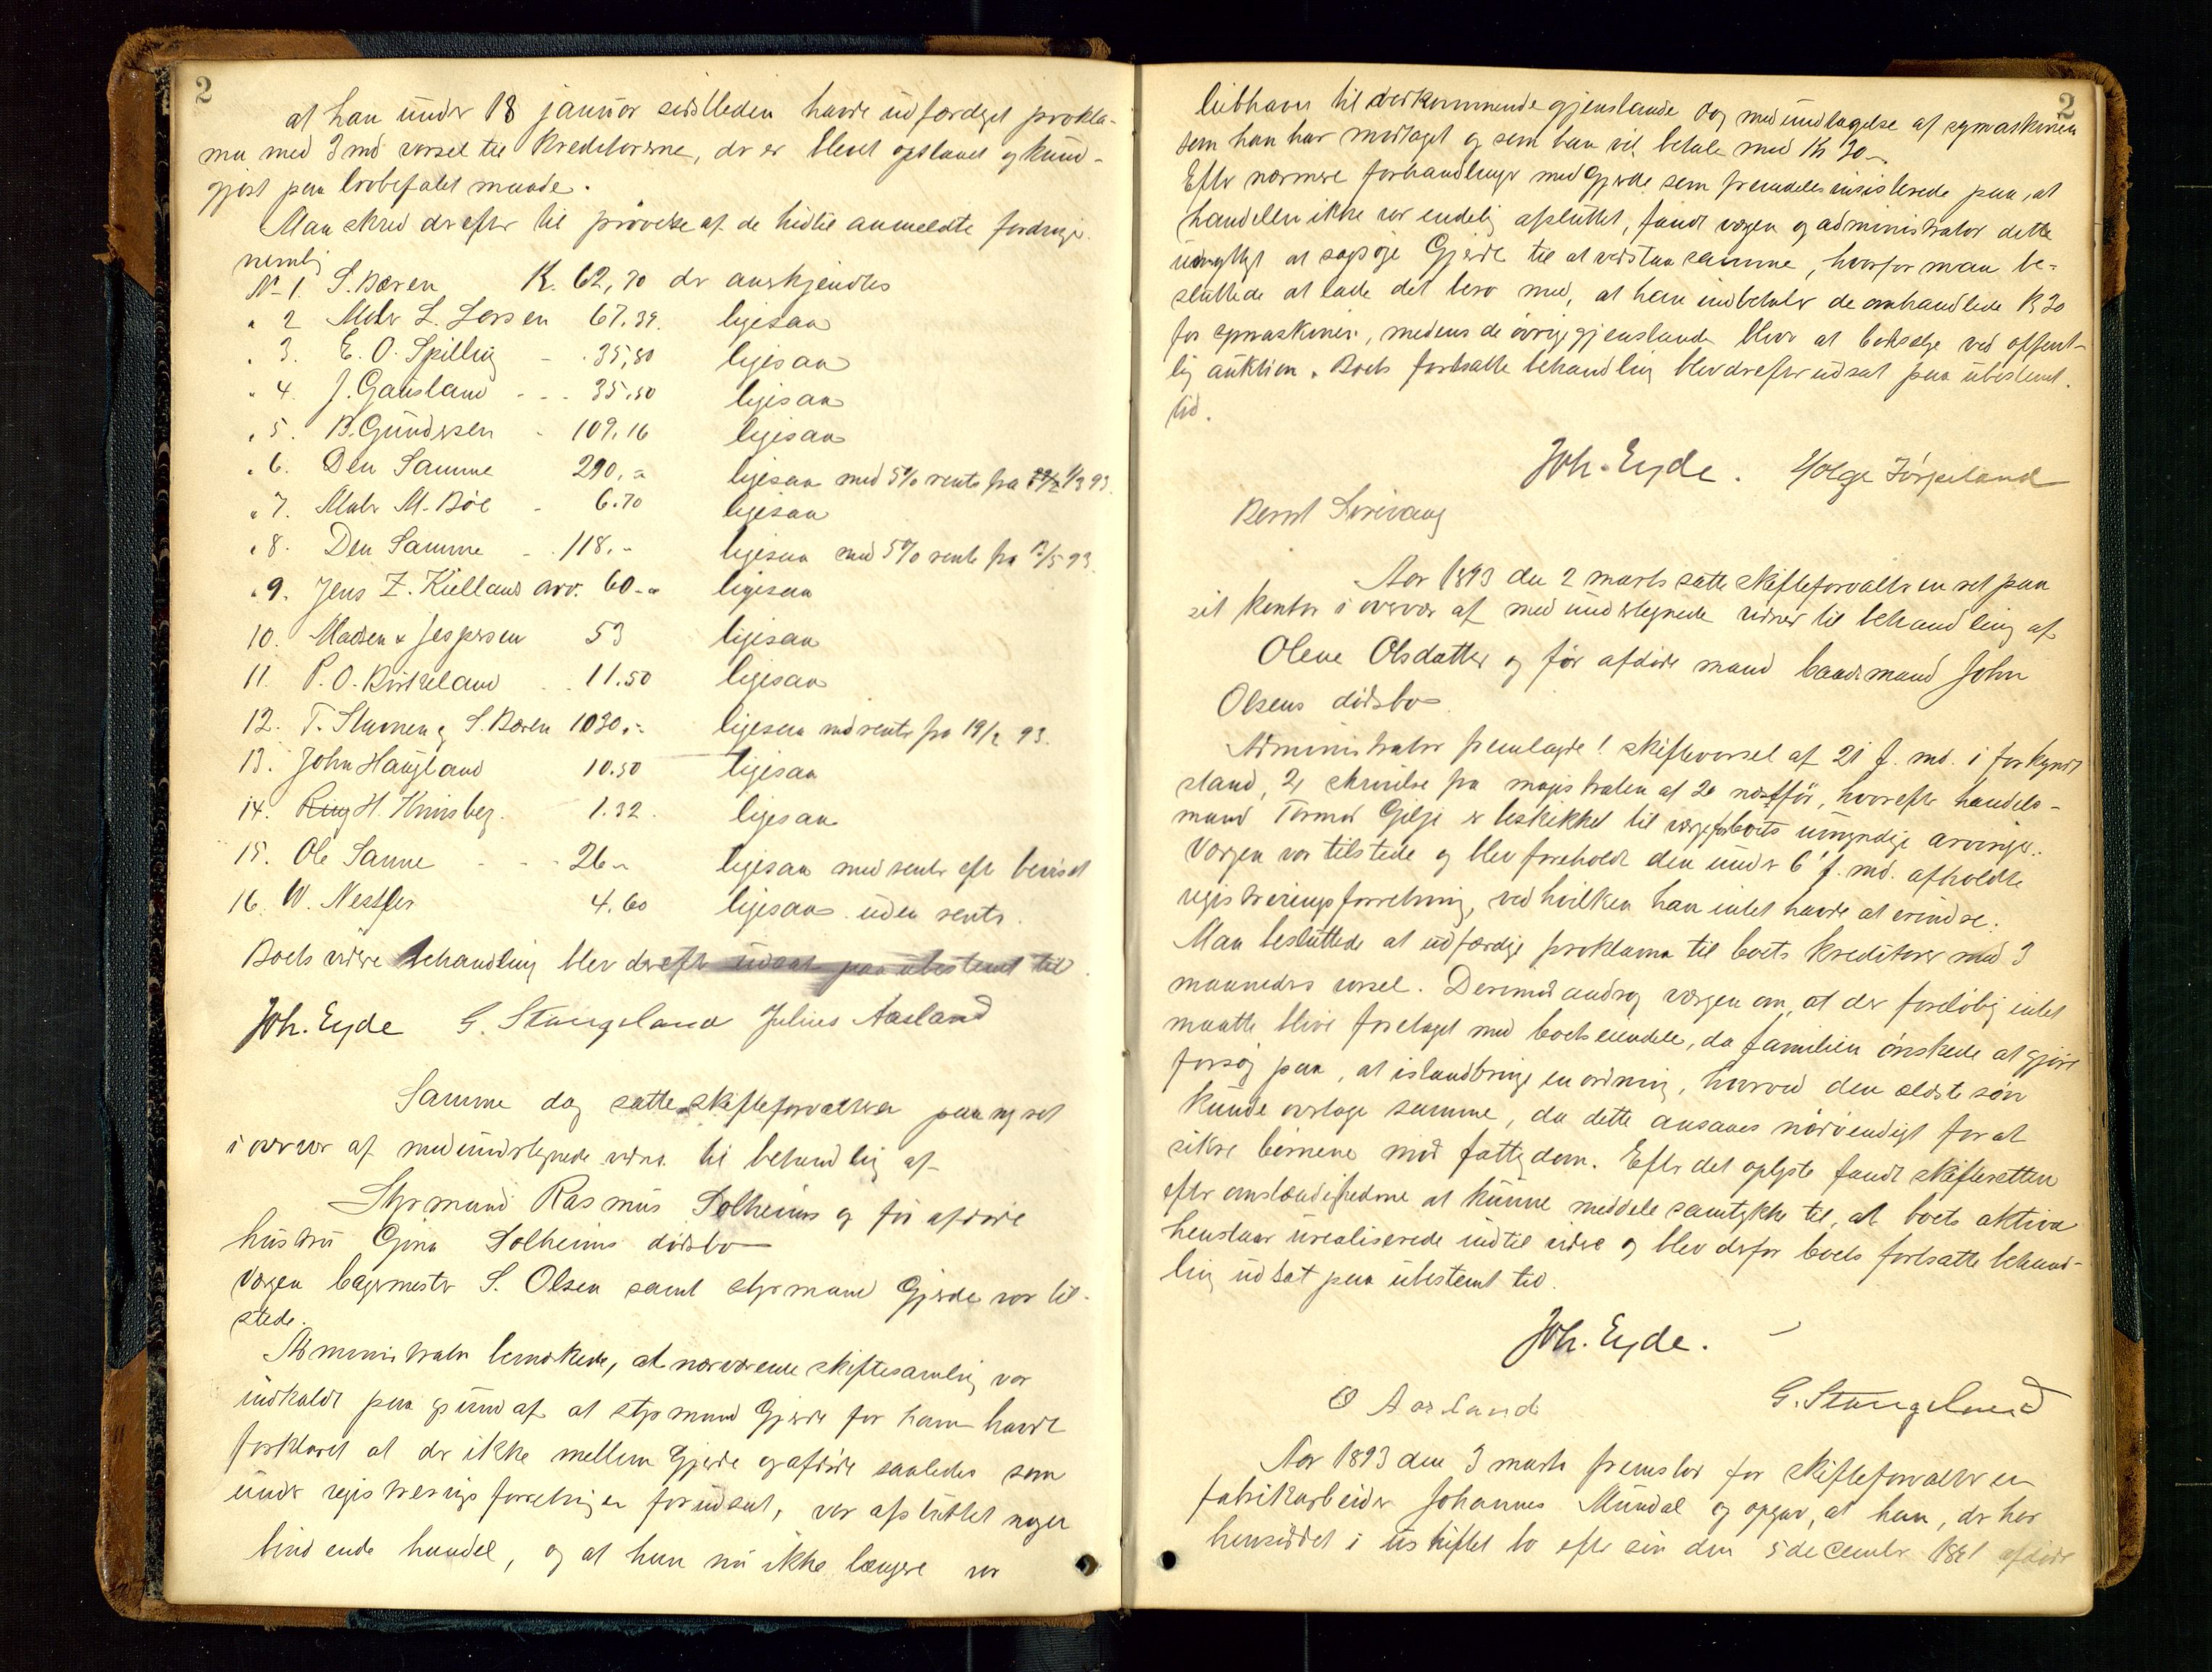 2
at han under 18 januar sidstleden havde udfærdiget prokla-
ma med 3 md varsel til kreditorerne, der er blevet opslaaet og kund-
gjort paa lovbefalet maade.
Man skred derefter til prøvelse af de hidtil anmeldte fordringer
nemlig
No 1. S. Bæren K. 62,70 der anerkjendtes
" 2 Maler L. Larsen 67.39. ligesaa
" 3. E. O. Spilling - 35,80 ligesaa
" 4. J. Gausland - - - 35,50 ligesaa
" 5. B. Gundersen - 109.16 ligesaa
" 6. Den Samme 290,- ligesaa med 5% rente fra 1/3 93.
" 7. Maler M. Bøe - 6.70 ligesaa
" 8. Den Samme - - 118.- ligesaa med 5% rente fra 12/5 93.
" 9. Jens Z. Kielland arv. 60.- ligesaa
10. Madsen & Jespersen 53 ligesaa
11. P. O. Birkeland - . 11.50 ligesaa
12. T. Stumen & S. Bæren 1030.- ligesaa med rente fra 19/2 93.
13. John Haugland 10.50 ligesaa
14. H. Kinsberg. 1.32. ligesaa
15. Ole Sanne - - - 26.- ligesaa med rente efter beviset
16. W. Nestler 4.60 ligesaa uden rente.
Boets videre behandling blev derefter udsat paa ubestemt tid
Joh. Eyde G. Stangeland Julius Aasland
Samme dag satte skifteforvalteren paany ret
i overvær af medundertegnede vidner til behandling af
Styrmand Rasmus Solheims og før afdøde
hustru Gina Solheims dødsbo
Værgen bagermester S. Olsen samt styrmand Gjerde var til-
stede.
Administrator bemærkede, at nærværende skiftesamling var
indkaldt paa grund af at styrmand Gjerde for ham havde
forklaret at der ikke mellem Gjerde og afdøde saaledes som
under registreringsforretningen forudsat, var afsluttet nogen
bindende handel, og at han nu ikke længere var
2
liebhaver til vedkommende gjenstande dog med undtagelse af symaskinen
som han har modtaget og som han vil betale med Kr 30-.
Efter nærmere forhandlinger med Gjerde som fremdeles insisterede paa, at
handelen ikke var endelig afsluttet, fandt værgen og administrator dette
unyttigt at sagsøge Gjerde til at vedstaa samme, hvorfor man be-
sluttede at lade det bero med, at han indbetaler de omhandlede K 30
for symaskinen, medens de øvrige gjenstande bliver at bortsælge ved offent-
lig auktion. Boets fortsatte behandling blev derefter udsat paa ubestemt
tid.
Joh. Eyde. Helge Jørpeland
Bernt Sørivaag
Aar 1893 den 2 marts satte skifteforvalteren ret paa
sit kontor i overvær af medundertegnede vidner til behandling af
Olene Olsdatter og før afdøde mand baadsmand John
Olsens dødsbo.
Administrator fremlagde 1 skiftevarsel af 21 f. md. i forkyndt
stand, 2, skrivelse fra magistraten af 20 næstfør, hvorefter handels-
mand Tormod Gilje er beskikket til værge for boets umyndige arvinger.
Værgen var tilstede og blev foreholdt den under 6 f. md. afholdte
registreringsforretning, ved hvilken han intet havde at erindre.
Man besluttede at udfærdige proklama til boets kreditorer med 3
maaneders varsel. Derimod androg værgen om, at der foreløbig intet
maatte blive foretaget med boets eiendele, da familien ønskede at gjøre
forsøg paa, at istandbringe en ordning, hvorved den ældste søn
kunde overtage samme, da dette ansaaes nødvendigt for at
sikre børnene mod fattigdom. Efter det oplyste fandt skifteretten
efter omstændighederne at kunne meddele samtykke til, at boets aktiva
henstaar urealiserede indtil videre og blev derfor boets fortsatte behand-
ling udsat paa ubestemt tid.
Joh. Eyde.
O Aasland G. Stangeland
Aar 1893 den 3 marts fremstod for skifteforvalteren
fabrikarbeider Johannes Mundal og opgav, at han, der har
hensiddet i uskiftet bo efter sin den 5 december 1881 afdøde